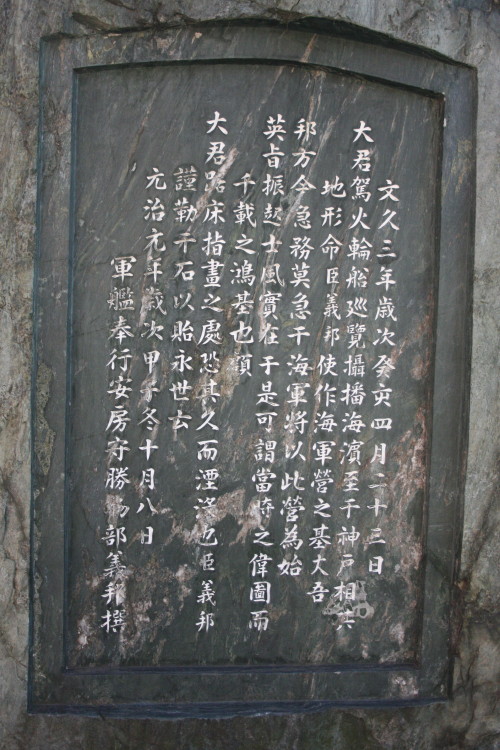 文久三年歳次癸亥四月二十三日
大君駕火輪船巡覽攝播海濱至于神戸相其
地形命臣義邦使作海軍營之基夫吾
邦方今急務莫急于海軍將以此營為始
英旨振起士風實在于是可謂當時之偉圖而
千載之鴻基也顧
大君踞床指畫之處恐其久而湮沒也臣義邦
謹勒于石以貽永世云
元治元年歳次甲子冬十月八日
軍艦奉行安房守勝物部義邦撰